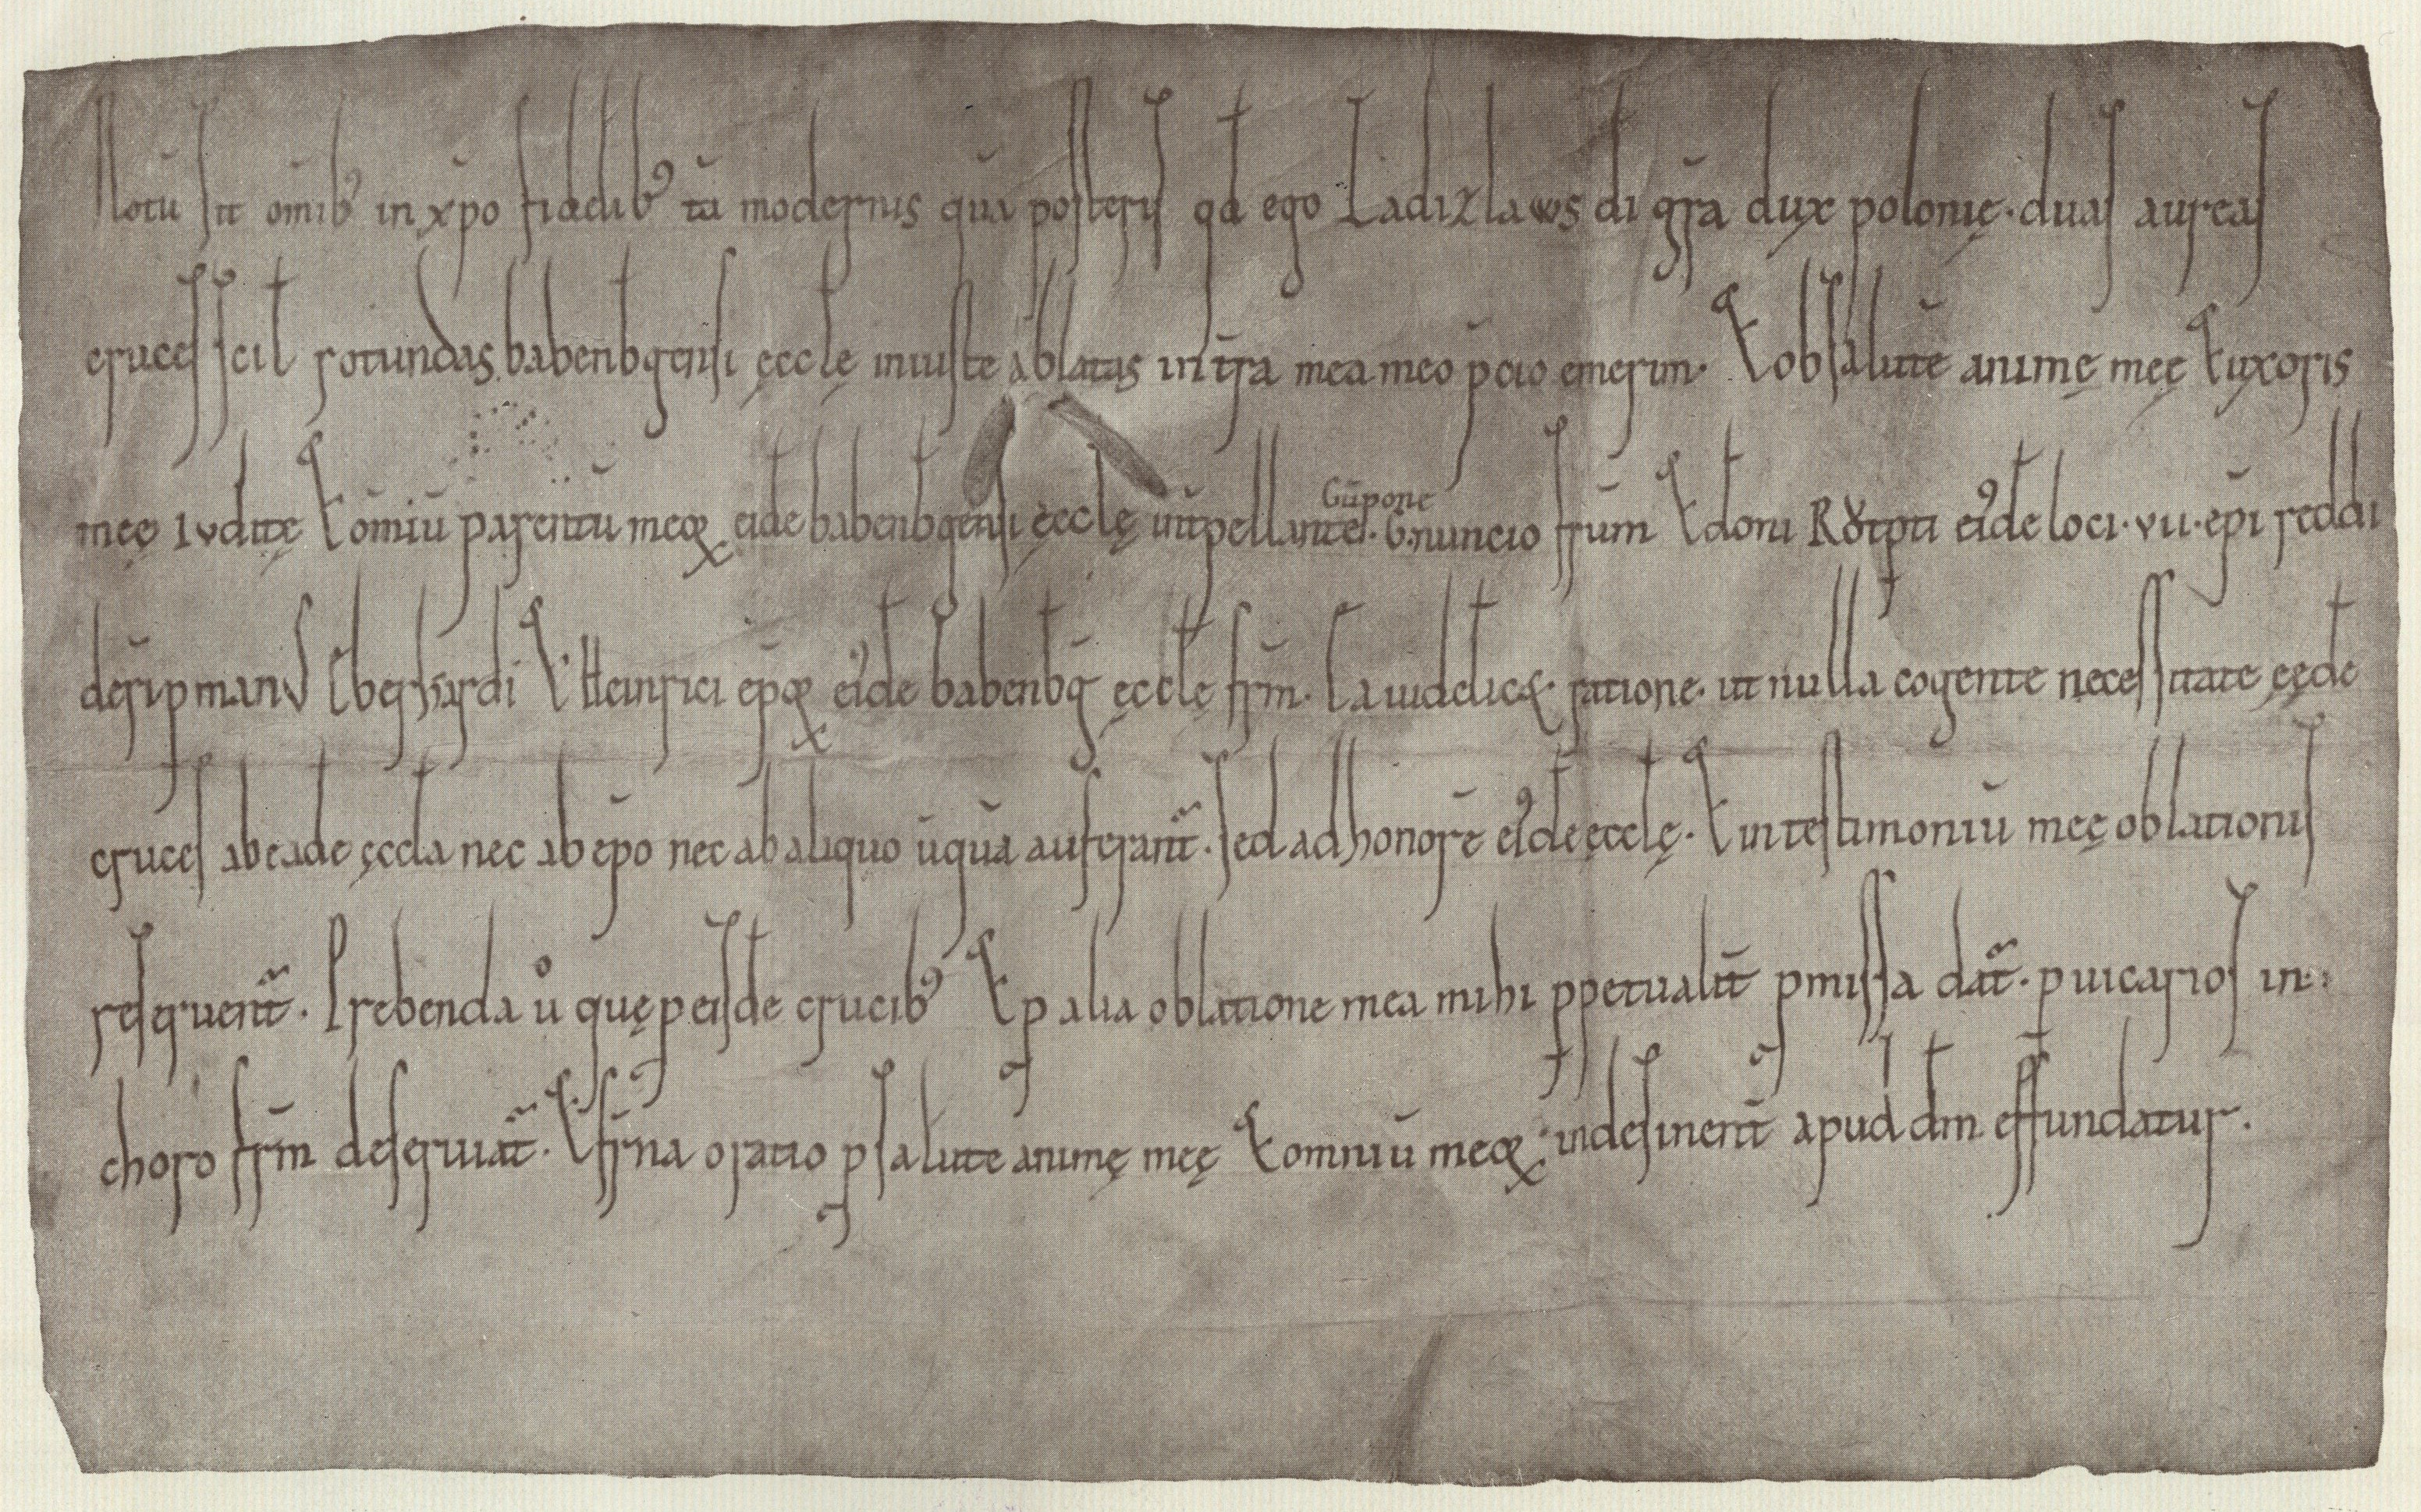 Notū sit om̄ib' in xp̄o fidelib' tā modernis quā posteris qđ ego Ladizlaws di gr̄a dux polonię · duas aureas
cruces scil rotundas babenbgensi ęccłę iniuste ablatas in tr̄a mea meo p̄cio emerim · & ob salutē animę meę & uxoris
meę Iuditę & om̄iū parentū meoꝝ eidē babenbgensi ęccłę int̄pellante · G · nuncio fr̄um & dom̄i Rŏtpti ei'dē loci · vii · ep̄i reddi
Gūpone
de p manus Eberhardi & Heinrici ep̄oꝝ ei'dē babenbḡ ęccłę fr̄m · Ea ratione · ut nulla cogente necessitate ęędē
cruces ab eadē ęccła nec ab ep̄o nec ab aliquo ūquā auferant̄ · sed ad honorē ei'dē ęccłę · & in testimoniū meę oblationis
reseruent̄ · Prebenda ů quę p eisdē crucib' & p alia oblatione mea mihi ppetualit̄ pmissa dat̄ · p uicarios in
choro fr̄m deseruiat̄ · & fr̄na oratio p salute animę meę & omniū meoꝝ indesinent̄ apud dm̄ effundatur .